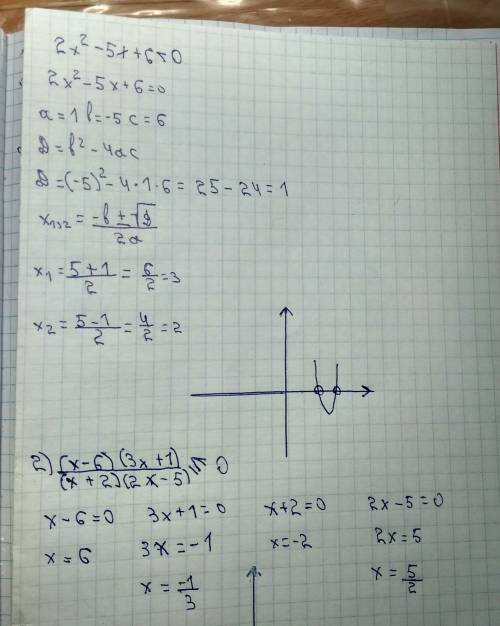 2x² - 5x + 6 < 0
2x² - 5x + 6 = 0
a = 1 b = -5 c = 6
D = b² - 4ac
D = (-5)² - 4 · 1 · 6 = 25 - 24 = 1
x₁,₂ = (-b ± √D)/2a
x₁ = (5+1)/2 = 6/2 = 3
x₂ = (5-1)/2 = 4/2 = 2
2) (x-6)(3x+1)/(x+2)(2x-5) ≤ 0
x - 6 = 0 3x + 1 = 0 x + 2 = 0 2x - 5 = 0
x = 6 3x = -1 x = -2 2x = 5
x = -1/3 x = 5/2